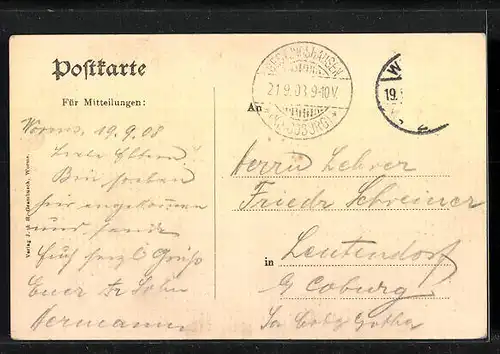 Postkarte
Für Mitteilungen:
An
21.9.03 9-10V.
W
19.
Worms, 19.9.08
Liebe Eltern!
Bin soeben
hier angekommen
und sende
Euch herzl Grüße
Euer tr Sohn
Hermann
Herrn Lehrer
Friedr Schreiner
in Leutendorf
Coburg
Gotha
Verlag J. Worms.